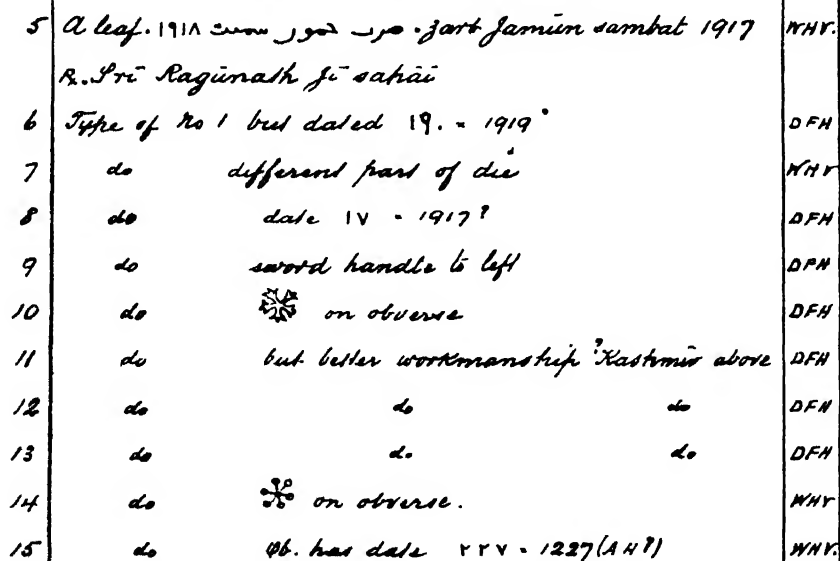 5 A leaf. ۱۹۱۸ ضرب جمور سمت . zarb Jamūn sambat 1917 WHV.
R. Srī Ragūnath Jī sahāi
6 Type of no 1 but dated 19. = 1919? DFH
7 do different part of die WHV
8 do date ۱۷ = 1917? DFH
9 do sword handle to left DFH
10 do on obverse DFH
11 do but better workmanship ?Kashmir above DFH
12 do do do DFH
13 do do do DFH
14 do on obverse. WHV
15 do Ob. has date ۲۲۷ = 1227 (AH?) WHV.